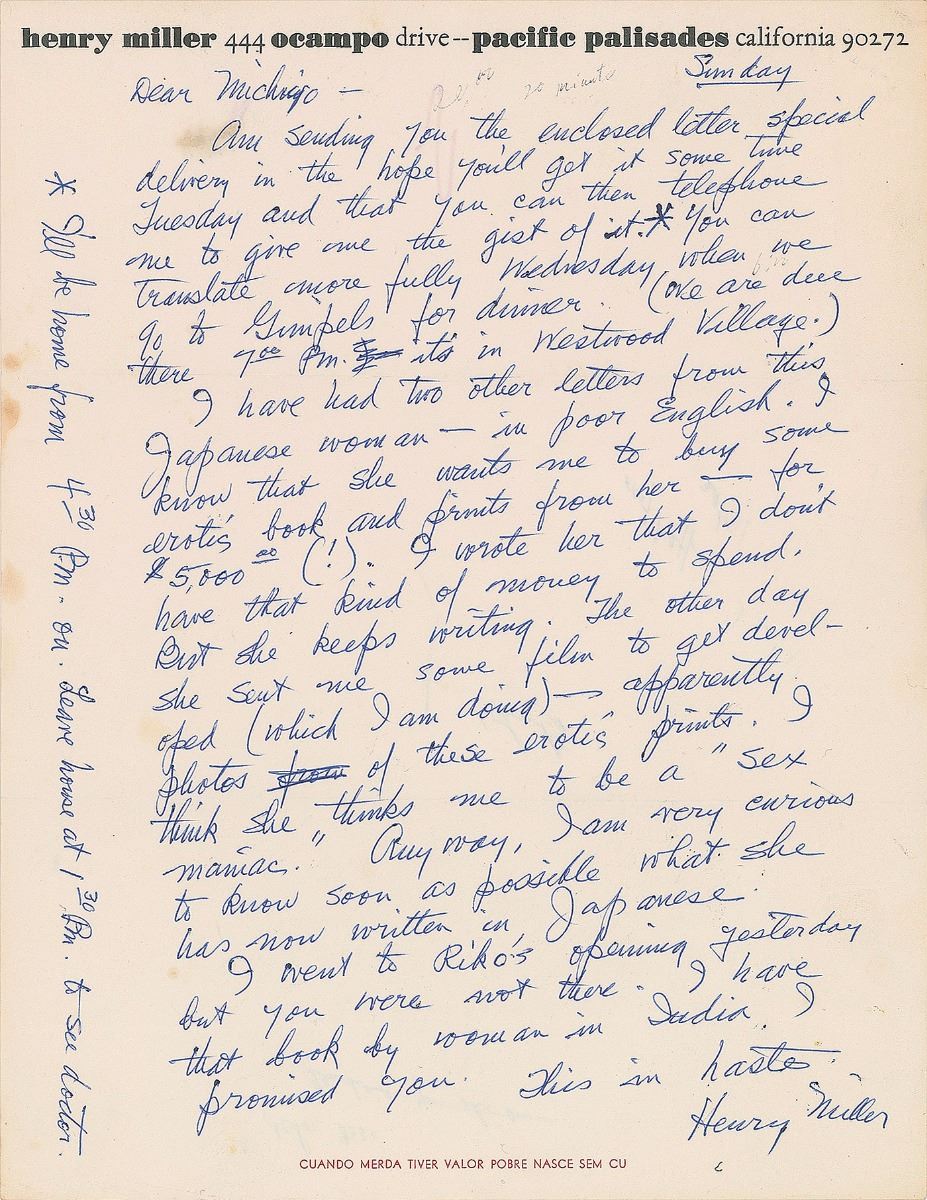 henry miller 444 ocampo drive--pacific palisades california 90272
Sunday
Dear Michiyo —
20 minutes
Am sending you the enclosed letter special
delivery in the hope you'll get it some time
Tuesday and that you can then telephone
me to give me the gist of it.* You can
translate more fully Wednesday, when we
go to Gimpels for dinner. (We are due
there 7ºº Pm. it's in Westwood Village.)
I have had two other letters from this
Japanese woman — in poor English. I
know that she wants me to buy some
erotic book and prints from her — for
$5,000ºº (!). I wrote her that I don't
have that kind of money to spend.
But she keeps writing. The other day
she sent me some film to get devel-
oped (which I am doing) — apparently
photos from of these erotic prints. I
think she thinks me to be a "sex
maniac." Anyway, I am very curious
to know soon as possible what she
has now written in Japanese.
I went to Riko's opening yesterday
but you were not there. I have
that book by woman in India I
promised you. This in haste.
Henry Miller
* I'll be home from 4³⁰ Pm. on. Leave house at 1³⁰ Pm. to see doctor.
CUANDO MERDA TIVER VALOR POBRE NASCE SEM CU